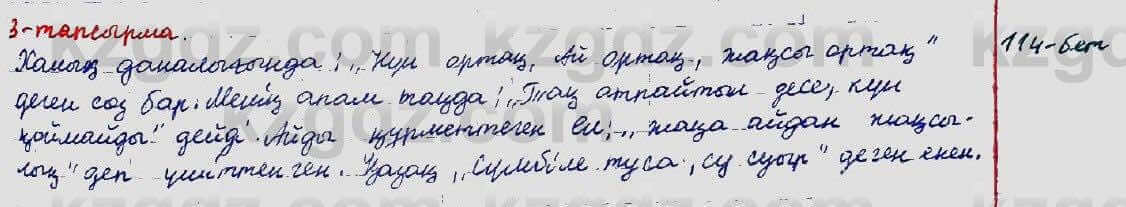 3-тапсырма.
Халық даналығында: „Күн ортақ, Ай ортақ, жақсы ортақ" 114-бет
деген сөз бар. Менің апам таңда: „Таң атпайтын десе, күн
қоймайды" дейді. Айды құрметтеген ел: „жаңа айдан жақсы-
лық" деп үміттенген. Қазақ „Сүмбіле туса, су суыр" деген екен.